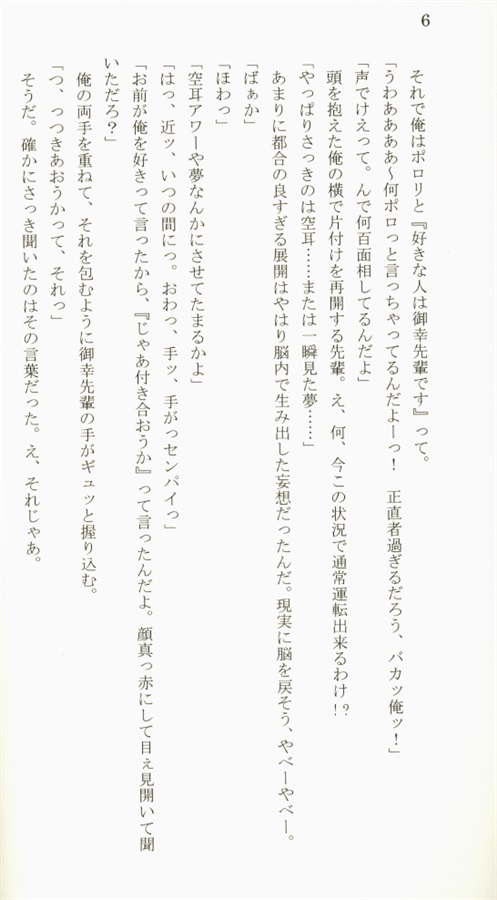 6
それで俺はポロリと『好きな人は御幸先輩です』って。
「うわああああ～何ポロっと言っちゃってるんだよーっ！　正直者過ぎるだろう、バカッ俺ッ！」
「声でけえって。んで何百面相してるんだよ」
頭を抱えた俺の横で片付けを再開する先輩。え、何、今この状況で通常運転出来るわけ!?
「やっぱりさっきのは空耳……または一瞬見た夢……」
あまりに都合の良すぎる展開はやはり脳内で生み出した妄想だったんだ。現実に脳を戻そう、やべーやべー。
「ばぁか」
「ほわっ」
「空耳アワーや夢なんかにさせてたまるかよ」
「はっ、近ッ、いつの間にっ。おわっ、手ッ、手がっセンパイっ」
「お前が俺を好きって言ったから、『じゃあ付き合おうか』って言ったんだよ。顔真っ赤にして目ぇ見開いて聞
いただろ？」
俺の両手を重ねて、それを包むように御幸先輩の手がギュッと握り込む。
「つ、っつきあおうかって、それっ」
そうだ。確かにさっき聞いたのはその言葉だった。え、それじゃあ。